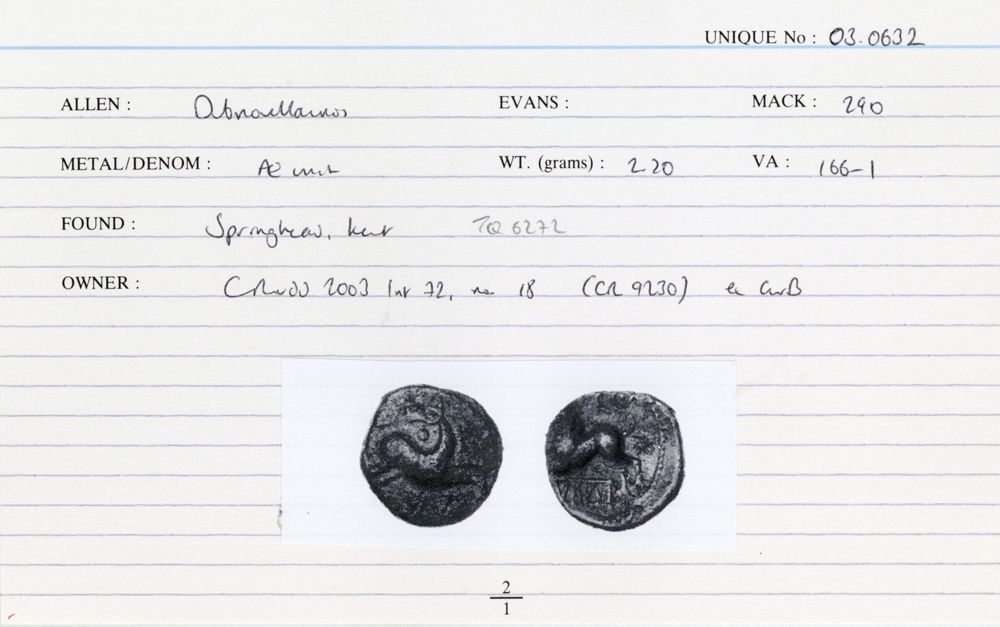 UNIQUE No : 03.0632
ALLEN : Dubnovellaunos EVANS : MACK : 290
METAL/DENOM : Æ unit WT. (grams) : 2.20 VA : 166-1
FOUND : Springhead, Kent TQ 6272
OWNER : CRudd 2003 list 72, no 18 (CR 9230) ex
2
1